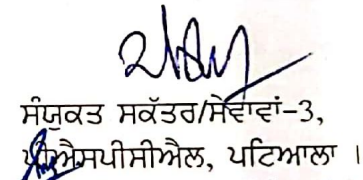 ਸੰਯੁਕਤ ਸਕੱਤਰ/ਸੇਵਾਵਾਂ-3,
ਪੀਐਸਪੀਸੀਐਲ, ਪਟਿਆਲਾ ।